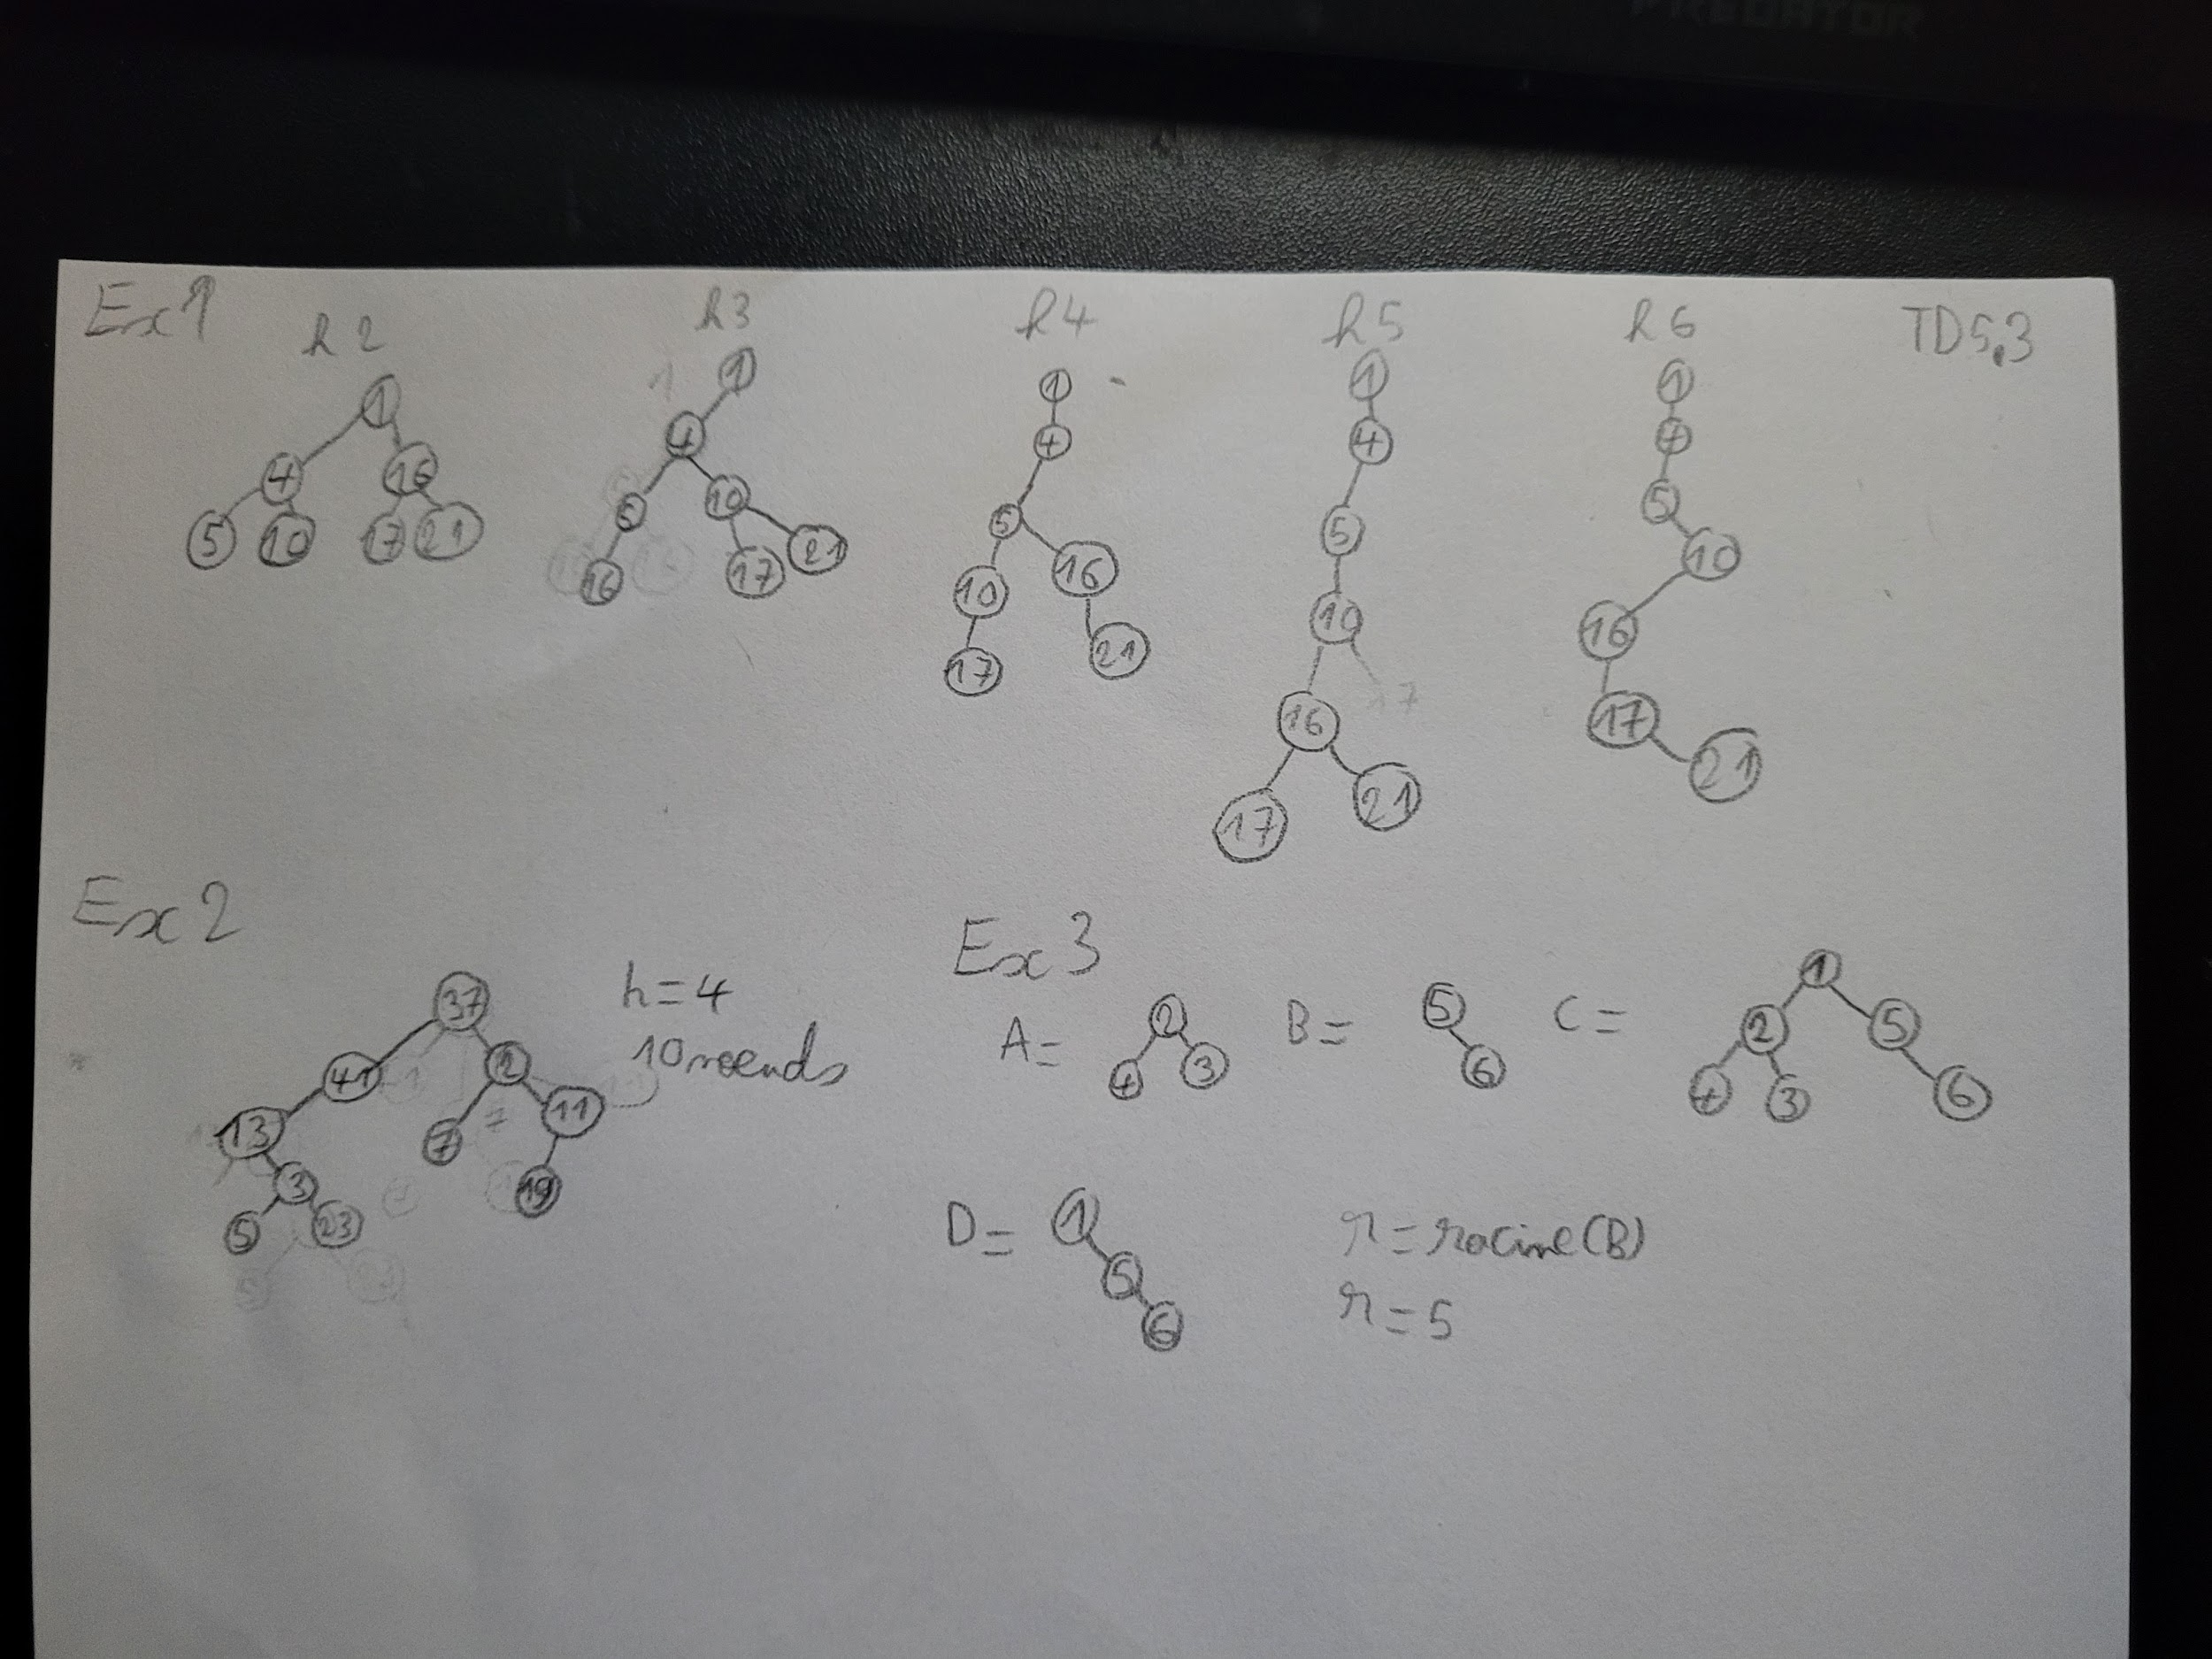 PREDATOR
Ex1
h2
h3
h4
h5
h6
TD5.3
1
4 16
5 10 17 21
1
4
5 10
16 17 21
1
4
5
10 16
17 21
1
4
5
10
16
17 21
1
4
5
10
16
17
21
Ex2
37
41 2
13 7 11
3 19
5 23
h=4
10 noeuds
Ex3
A=
2
4 3
B=
5
6
C=
1
2 5
4 3 6
D=
1
5
6
r=racine(B)
r=5